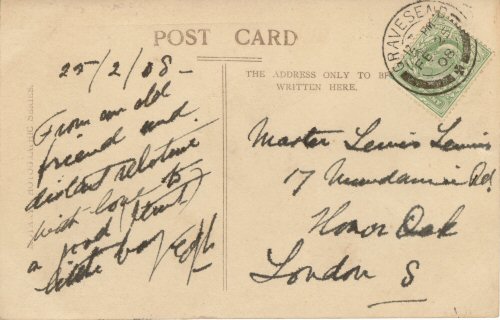 POST CARD
25/2/08 -
From an old
friend and
distant relative
with love to
a good (trust)
little boy
THE ADDRESS ONLY TO BE
WRITTEN HERE.
GRAVESEND
FE 25
08
Master Lewis Lewis
17 Rd
Honor Oak
London S